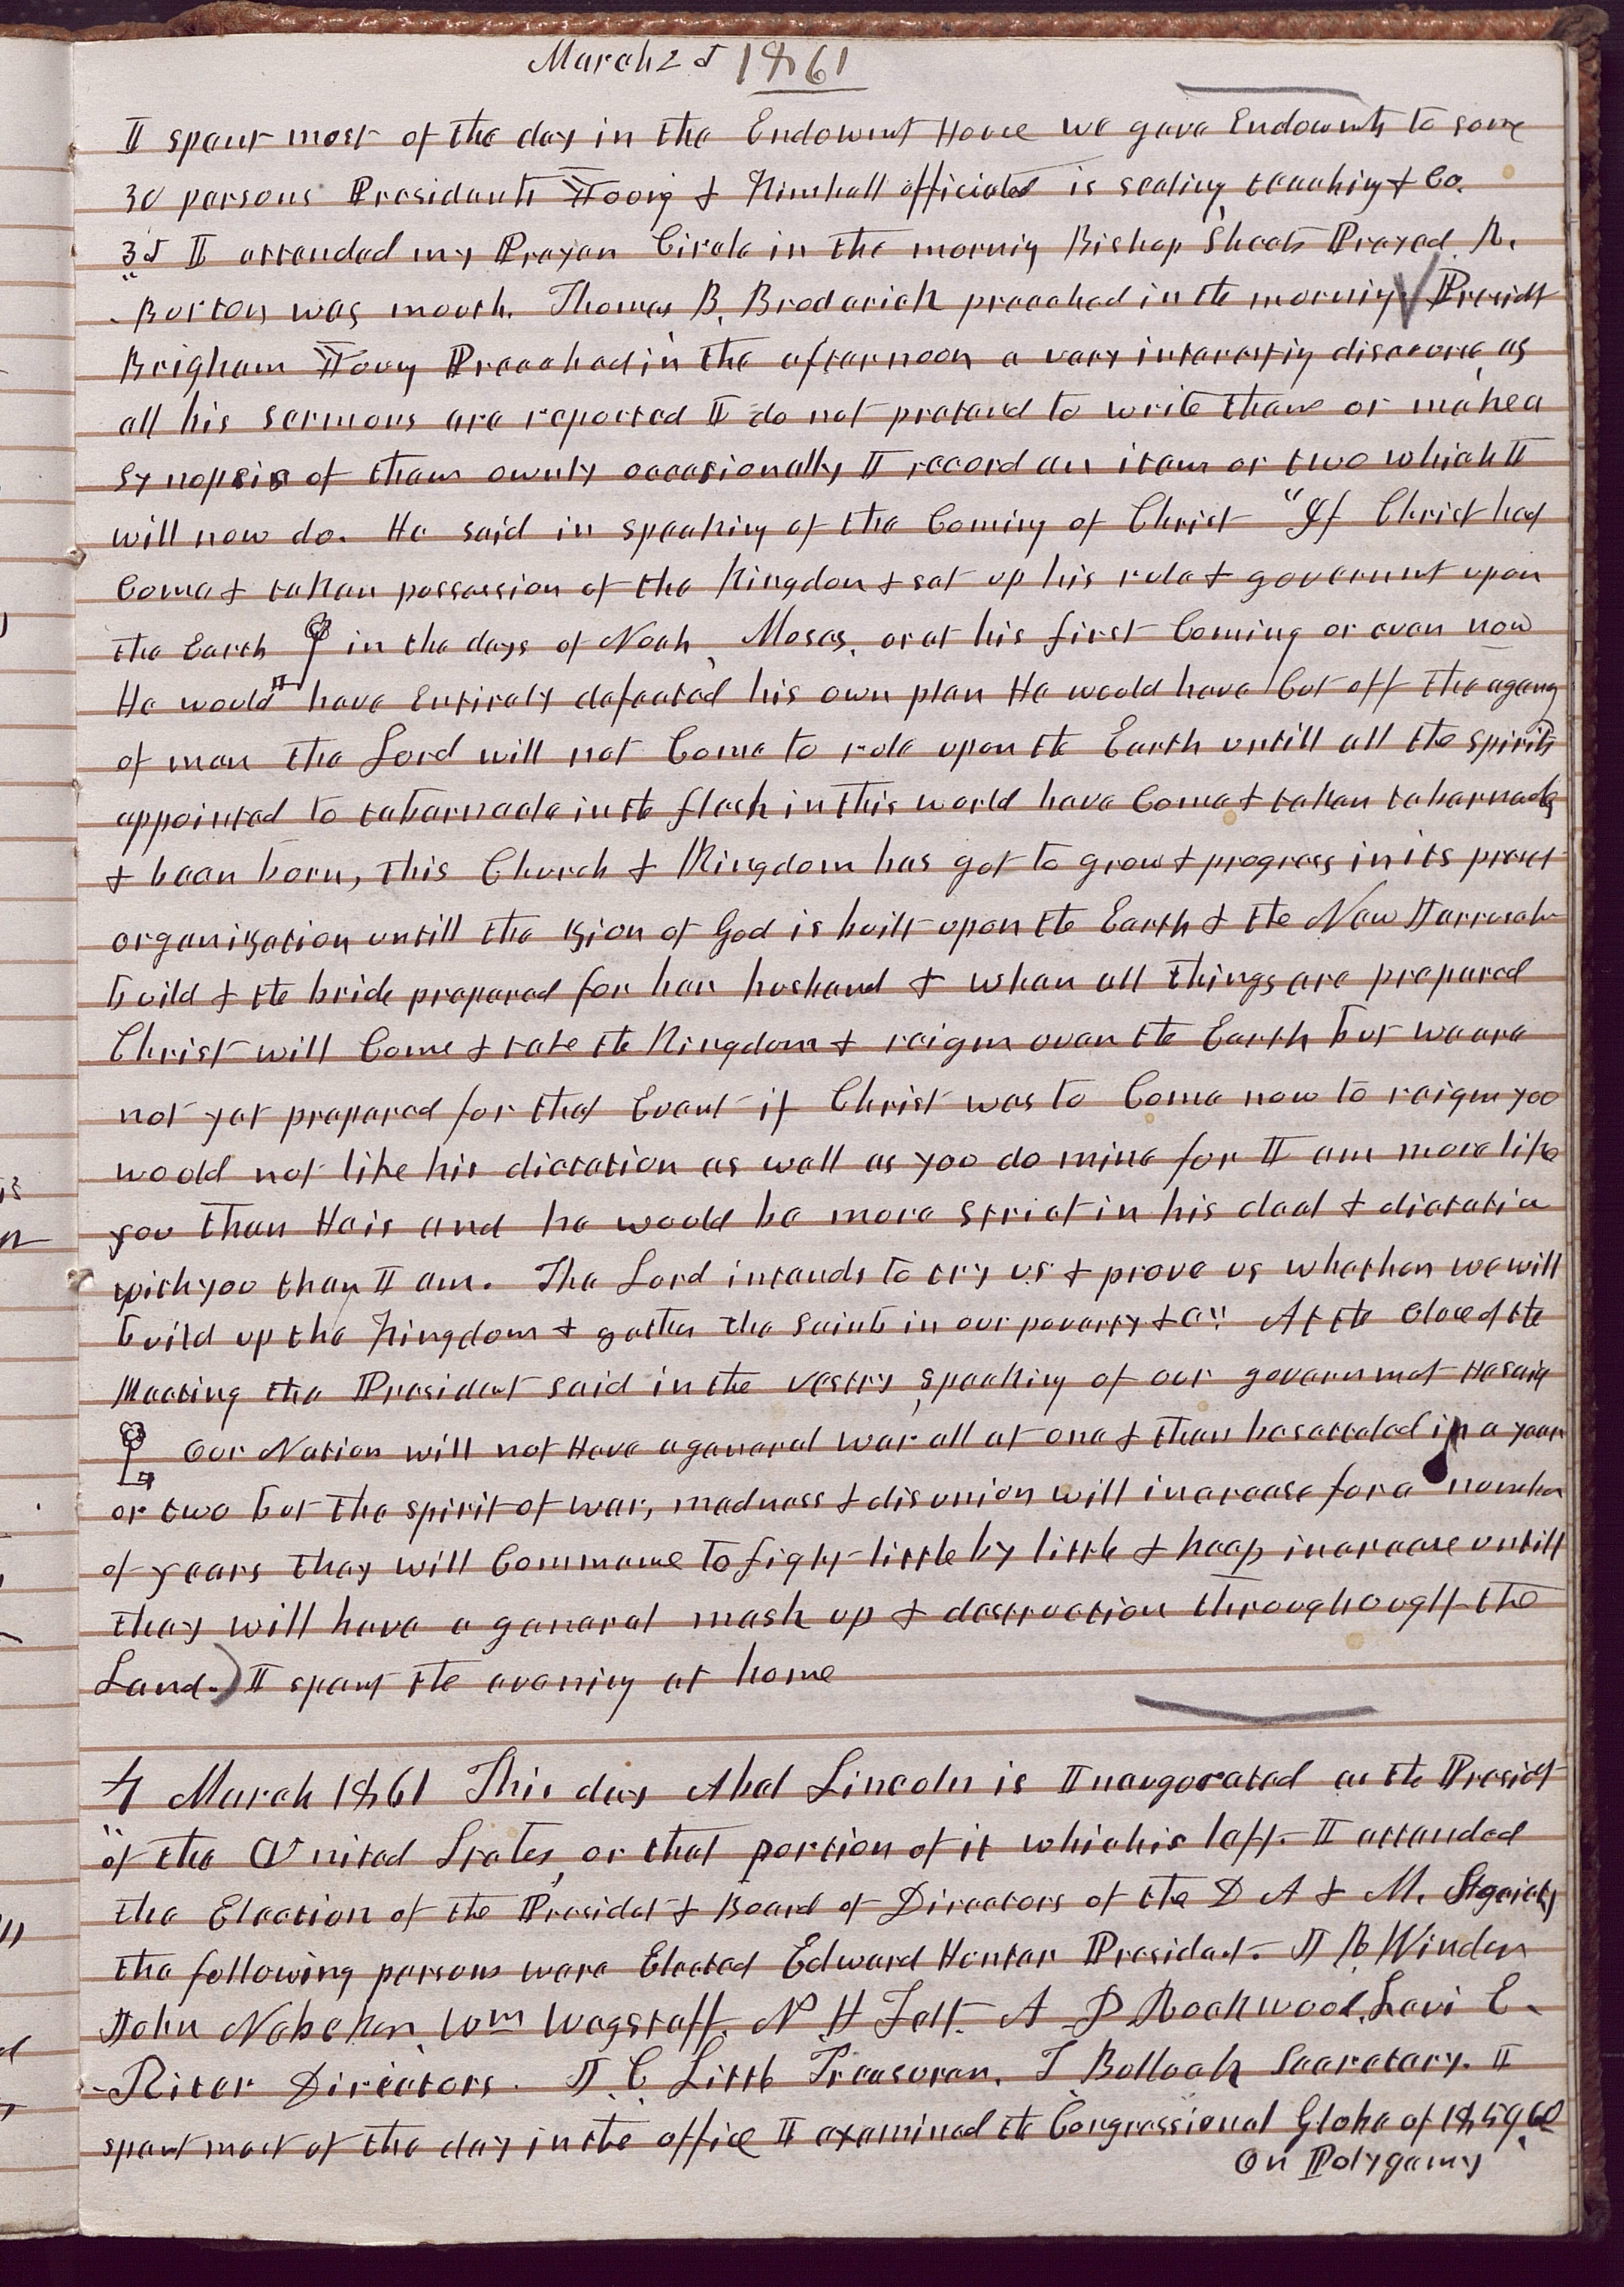 March 2d 1861
I spent most of the day in the Endowmt House we gave Endowmts to some
30 persons Presidents Young & Kimball officiated is sealing, teaching & Co.
3d I attended my Prayer Circle in the morning Bishop Sheets Prayed R.
Burton was mouth. Thomas B. Broderick preached in the morning. Presidt
Brigham Young Preached in the afternoon a very interesting discourse, as
all his sermons are reported I do not pretend to write them or make a
synopsis of them ownly occasionally I record an item or two which I
will now do. He said in speaking of the Coming of Christ "If Christ had
Come & taken possession of the Kingdom & set up his rule & governmt upon
the Earth in the days of Noah, Moses, or at his first Coming or even now
He would have Entirely defeated his own plan He would have Cut off the agency
of man the Lord will not Come to rule upon the Earth untill all the spirits
appointed to tabernacle in the flesh in this world have Come & taken tabernacles
& been born, This Church & Kingdom has got to grow & progress in its preset
organization untill the zion of God is built upon the Earth & the New Jerrusalem
build & the bride prepared for her husband & when all things are prepared
Christ will Come & take the Kingdom & reign over the Earth but we are
not yet prepared for that Event if Christ was to Come now to reign you
would not like his dictation as well as you do mine for I am more like
you than He is and he would be more strict in his deal & dictation
with you than I am. The Lord intends to try us & prove us whether we will
build up the Kingdom & gather the Saints in our poverty & C" At the Close of the
Meeting the President said in the vestry, speaking of our governmet He said
Our Nation will not Have a general war all at one & then be settled in a year
or two but the spirit of war, madness & disunion will increase for a number
of years they will Commence to fight little by little & keep increase untill
they will have a general mash up & destruction throughought the
Land.) I spent the evening at home
4 March 1861 This day Abel Lincoln is Inaugorated as the Presidt
of the United States, or that portion of it which is left. I attended
the Election of the Presidet & Board of Directors of the D A & M. Society
the following persons were Elected Edward Hunter Presidet. J R Winder
John Nebeker, Wm Wagstaff. N H Felt. A P Rockwood, Levi E.
Riter Directors. J. C. Little Treasurer. T Bullock Secretary. I
spent most of the day in the office I examined the Congressional Globe of 1859, 60
On Polygamy